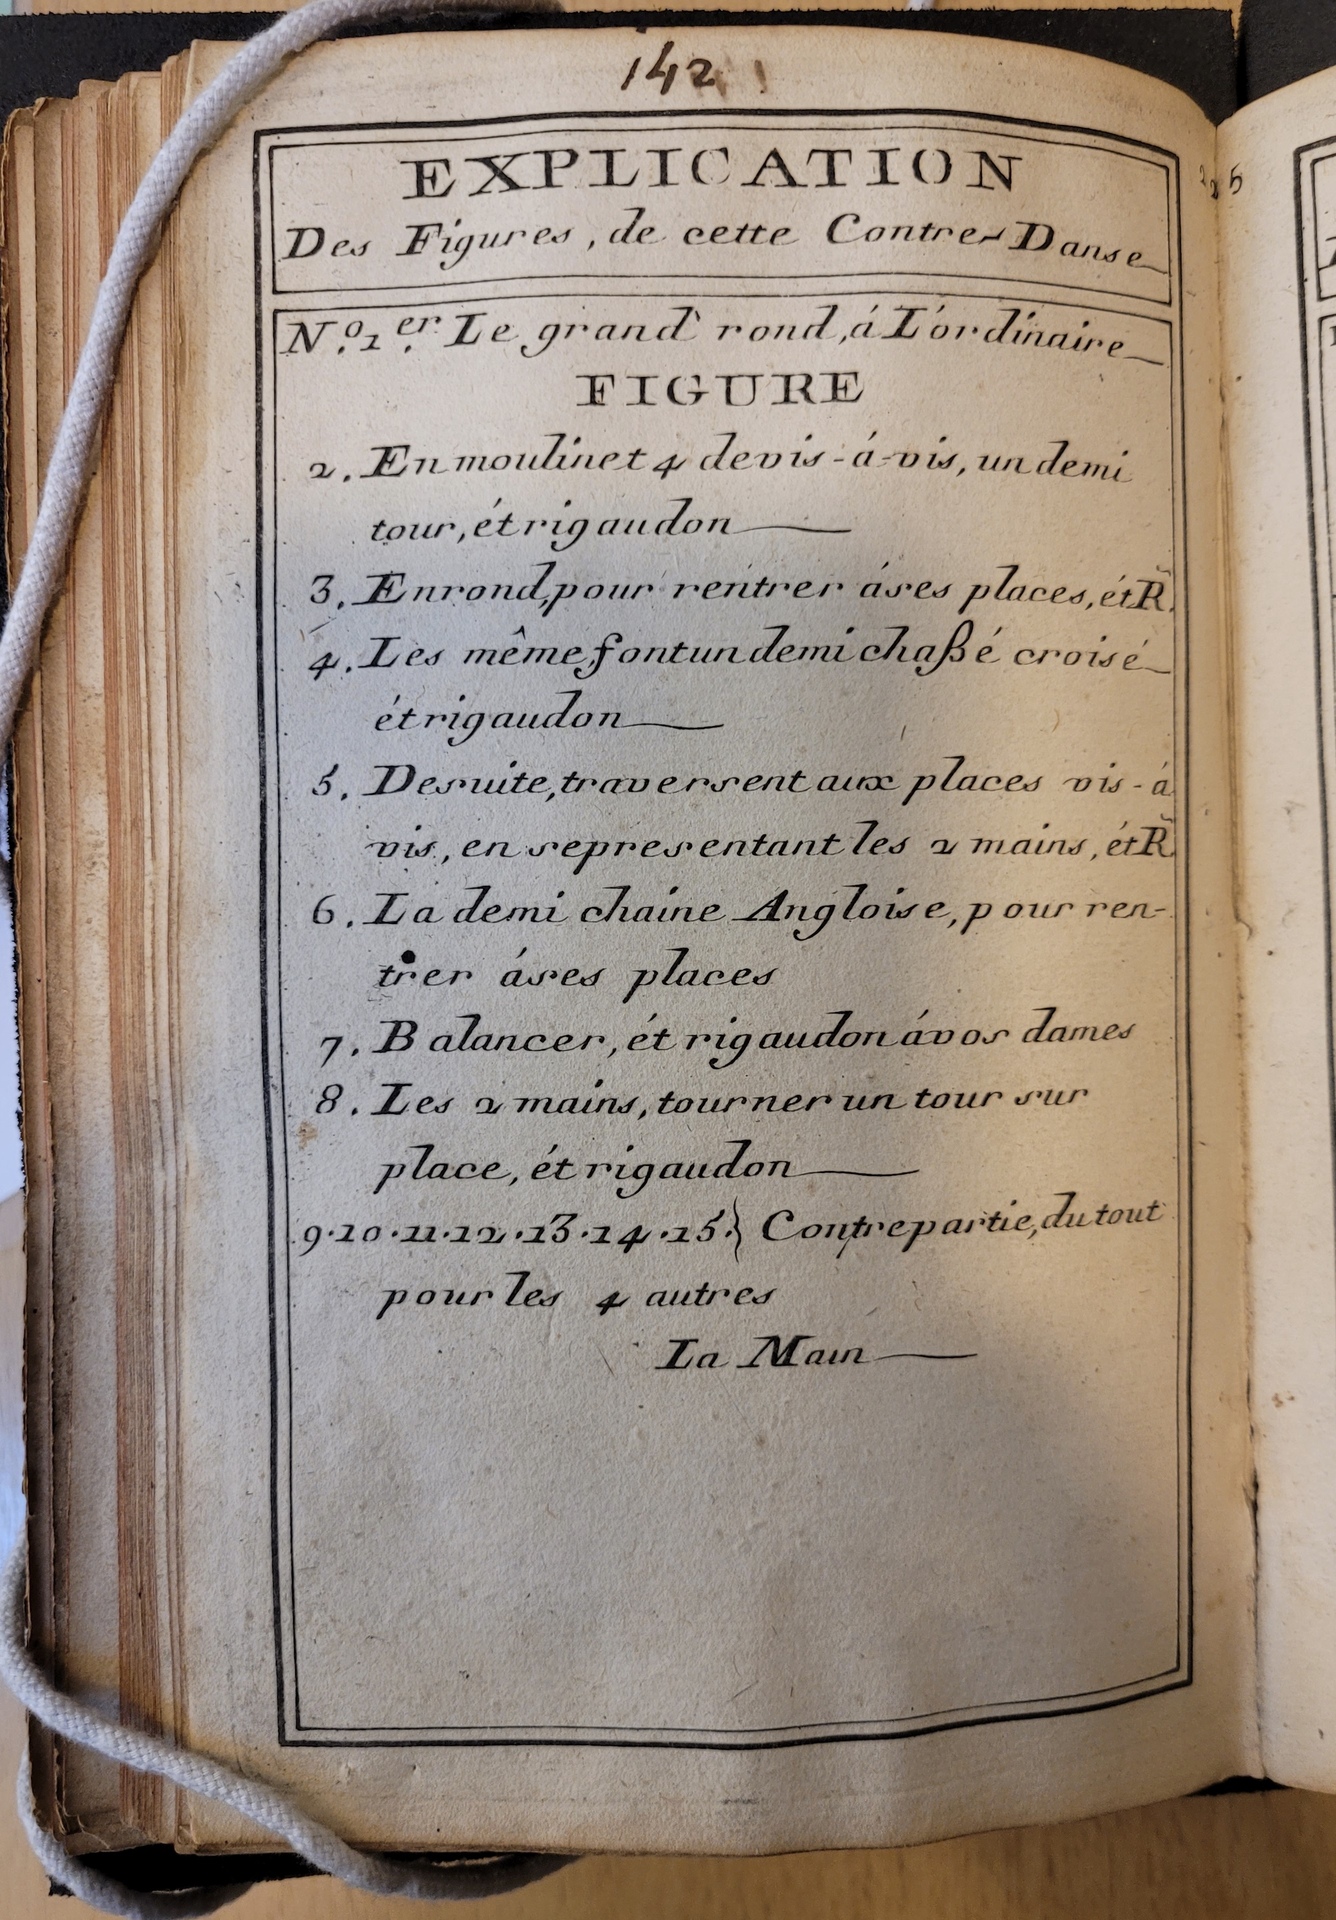 142
EXPLICATION
Des Figures, de cette Contre-Danse
N.º 1.er Le grand rond, á L'ordinaire
FIGURE
2. En moulinet 4 de vis-á-vis, un demi
tour, ét rigaudon
3. En rond, pour rentrer á ses places, ét R.
4. Les même, font un demi chaßé croisé
ét rigaudon
5. De suite, traversent aux places vis-á
vis, en se presentant les 2 mains, ét R.
6. La demi chaine Angloise, pour ren-
trer á ses places
7. Balancer, ét rigaudon á vos dames
8. Les 2 mains, tourner un tour sur
place, ét rigaudon
9.10.11.12.13.14.15.} Contrepartie, du tout
pour les 4 autres
La Main